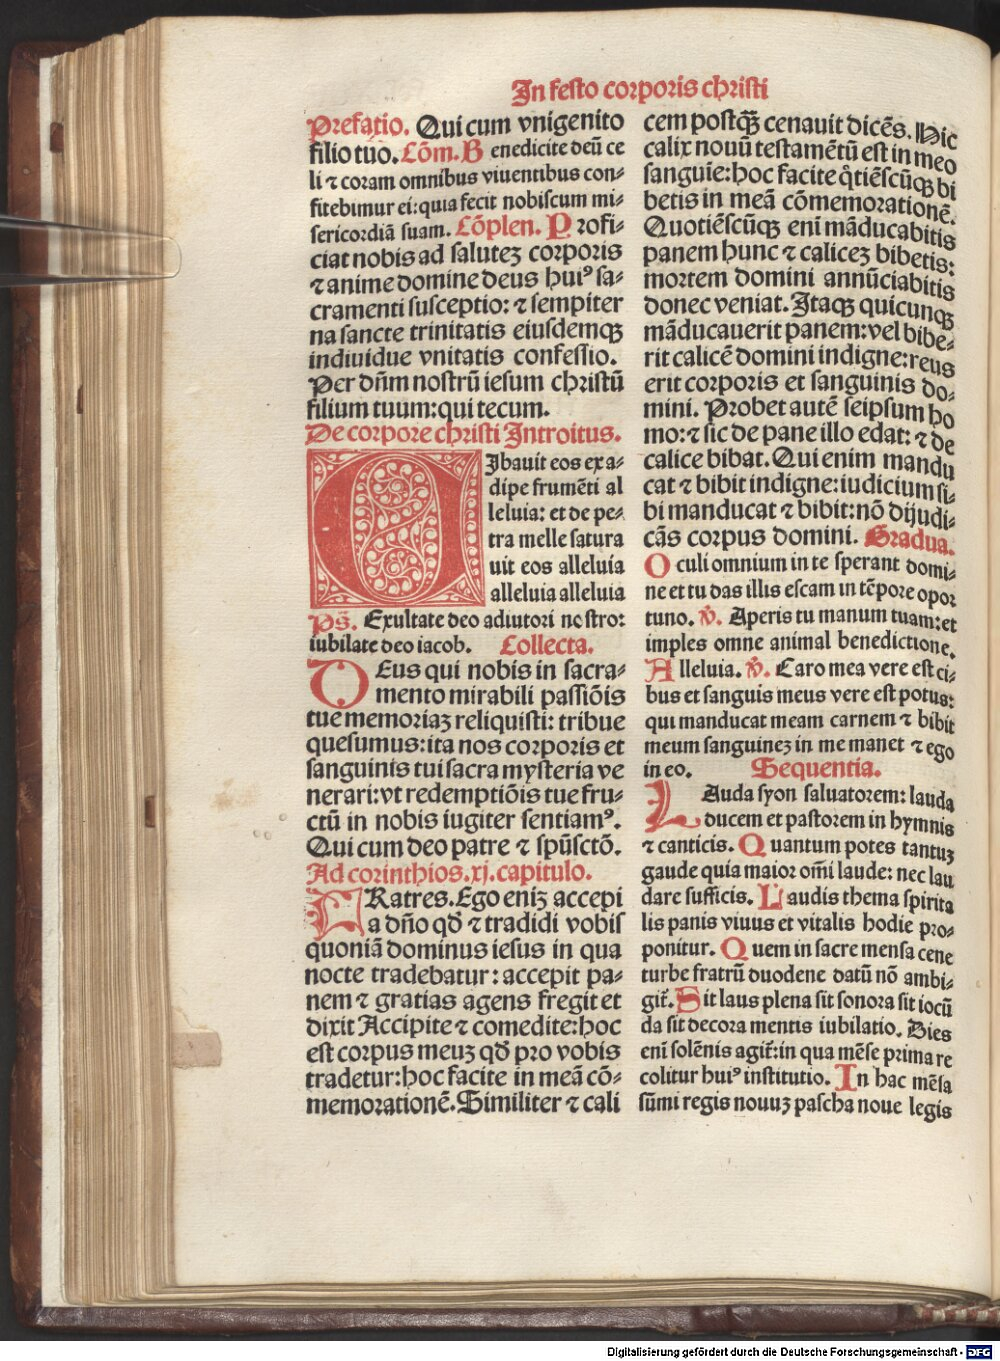 In festo corporis christi
Prefatio. Qui cum vnigenito
filio tuo. Cōm. B enedicite deū ce
li ⁊ coram omnibus viuentibus con⸗
fitebimur ei: quia fecit nobiscum mi⸗
sericordiā suam. Cōplen. P rofi⸗
ciat nobis ad saluteꝫ corporis
⁊ anime domine deus huiꝰ sa⸗
cramenti susceptio: ⁊ sempiter
na sancte trinitatis eiusdemqꝫ
indiuidue vnitatis confessio.
Per dn̄m nostrū iesum christū
filium tuum: qui tecum.
De corpore christi Introitus.
CIbauit eos exa⸗
dipe frumēti al
leluia: et de pe⸗
tra melle satura
uit eos alleluia
alleluia alleluia
Ps̄. Exultate deo adiutori nostro:
iubilate deo iacob. Collecta.
DEus qui nobis in sacra⸗
mento mirabili passiōis
tue memoriaꝫ reliquisti: tribue
quesumus: ita nos corporis et
sanguinis tui sacra mysteria ve
nerari: vt redemptiōis tue fru⸗
ctū in nobis iugiter sentiamꝰ.
Qui cum deo patre ⁊ spūsctō.
Ad corinthios. xj. capitulo.
FRatres. Ego eniꝫ accepi
a dn̄o qd̄ ⁊ tradidi vobis
quoniā dominus iesus in qua
nocte tradebatur: accepit pa⸗
nem ⁊ gratias agens fregit et
dixit Accipite ⁊ comedite: hoc
est corpus meuꝫ qd̄ pro vobis
tradetur: hoc facite in meā cō⸗
memorationē. Similiter ⁊ cali
cem postqꝫ̄ cenauit dicēs. Hic
calix nouū testamētū est in meo
sanguie: hoc facite q̇tiēscūqꝫ bi
betis in meā cōmemorationē.
Quotiēscūqꝫ eni māducabitis
panem hunc ⁊ caliceꝫ bibetis:
mortem domini annūciabitis
donec veniat. Itaqꝫ quicunqꝫ
māducauerit panem: vel bibe⸗
rit calicē domini indigne: reus
erit corporis et sanguinis do⸗
mini. Probet autē seipsum ho
mo: ⁊ sic de pane illo edat: ⁊ de
calice bibat. Qui enim mandu
cat ⁊ bibit indigne: iudicium si⸗
bi manducat ⁊ bibit: nō dijudi⸗
cās corpus domini. Gradua.
O culi omnium in te sperant domi⸗
ne et tu das illis escam in tēpore opor
tuno. ℣. Aperis tu manum tuam: et
imples omne animal benedictione.
A lleluia. ℣. Caro mea vere est ci⸗
bus et sanguis meus vere est potus:
qui manducat meam carnem ⁊ bibit
meum sanguineꝫ in me manet ⁊ ego
in eo. Sequentia.
LAuda syon saluatorem: lauda
ducem et pastorem in hymnis
⁊ canticis. Q uantum potes tantuꝫ
gaude quia maior om̄i laude: nec lau
dare sufficis. L audis thema spirita
lis panis viuus et vitalis hodie pro⸗
ponitur. Q uem in sacre mensa cene
turbe fratrū duodene datū nō ambi⸗
git᷑. S it laus plena sit sonora sit iocū
da sit decora mentis iubilatio. Dies
enī solēnis agit᷑: in qua mēse prima re
colitur huiꝰ institutio. I n hac mēsa
sūmi regis nouuꝫ pascha noue legis
Digitalisierung gefördert durch die Deutsche Forschungsgemeinschaft - DFG